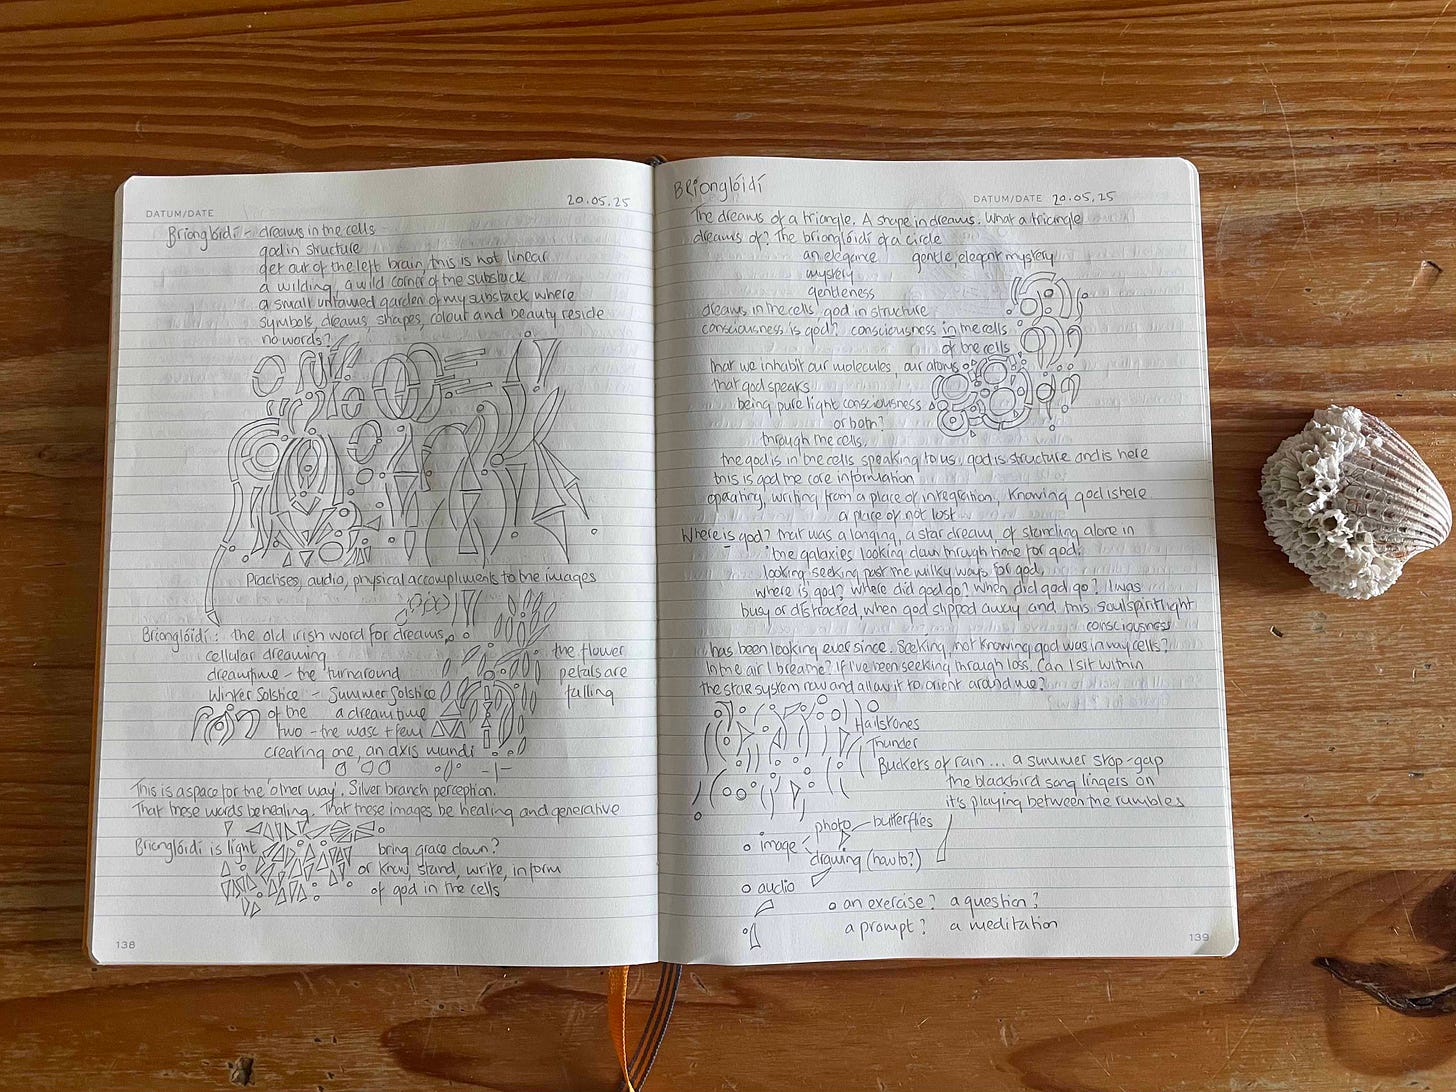 DATUM/DATE 20.05.25
Brionglóidí - dreams in the cells
god in structure
get out of the left brain, this is not linear
a wilding, a wild corner of the substack
a small untamed garden of my substack where
symbols, dreams, shapes, colour and beauty reside
no words?
Practises, audio, physical accompliments to the images
Brionglóidí: the old irish word for dreams
cellular dreaming
dreamtime - the turnaround
Winter Solstice - Summer Solstice
of the a dreamtime
two - the masc + fem
creating one, an axis mundi
the flower
petals are
falling
This is a space for the 'other way'. Silver branch perception.
That these words be healing. That these images be healing and generative
Brionglóidí is light bring grace down?
or know, stand, write, inform
of god in the cells
138
Brionglóidí
DATUM/DATE 20.05.25
The dreams of a triangle. A shape in dreams. What a triangle
dreams of? The brionglóidí of a circle
an elegance gentle, elegant mystery
mystery
gentleness
dreams in the cells, god in structure
consciousness is god? consciousness in the cells
of the cells
that we inhabit our molecules our atoms
that god speaks
being pure light consciousness
or both?
through the cells.
the god is in the cells speaking to us, god is structure and is here
this is god the core information
operating, writing from a place of integration, knowing god is here
a place of not lost
Where is god? that was a longing, a star dream, of standing alone in
the galaxies looking down through time for god.
looking, seeking past the milky ways for god.
where is god? where did god go? When did god go? I was
busy or distracted, when god slipped away and this soulspiritlight
consciousness
has been looking ever since. Seeking, not knowing god was in my cells?
In the air I breathe? If I've been seeking through loss. Can I sit within
the star system now and allow it to orient around me?
Hailstones
Thunder
Buckets of rain... a summer stop-gap
the blackbird song lingers on
it's playing between the rumbles
image photo butterflies
drawing (how to?)
audio
an exercise? a question?
a prompt? a meditation
139